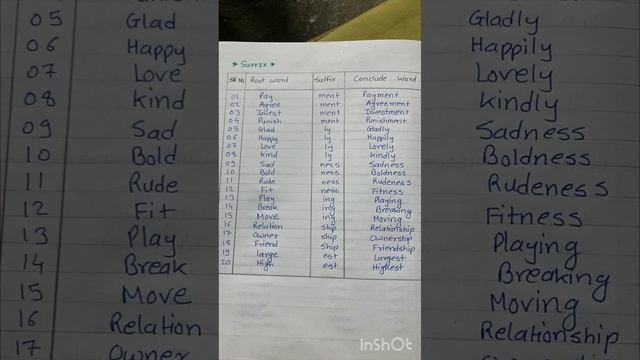 * SUFFIX *
SR No Root word Suffix Conclude Word
01 Pay ment Payment
02 Agree ment Agreement
03 Invest ment Investment
04 Punish ment Punishment
05 Glad ly Gladly
06 Happy ly Happily
07 Love ly Lovely
08 Kind ly Kindly
09 Sad ness Sadness
10 Bold ness Boldness
11 Rude ness Rudeness
12 Fit ness Fitness
13 Play ing Playing
14 Break ing Breaking
15 Move ing Moving
16 Relation ship Relationship
17 Owner ship Ownership
18 Friend ship Friendship
19 large est Largest
20 High est Highest
InShOt
05 Glad Gladly
06 Happy Happily
07 Love Lovely
08 kind kindly
09 Sad Sadness
10 Bold Boldness
11 Rude Rudeness
12 Fit Fitness
13 Play Playing
14 Break Breaking
15 Move Moving
16 Relation Relationship
17 Owner